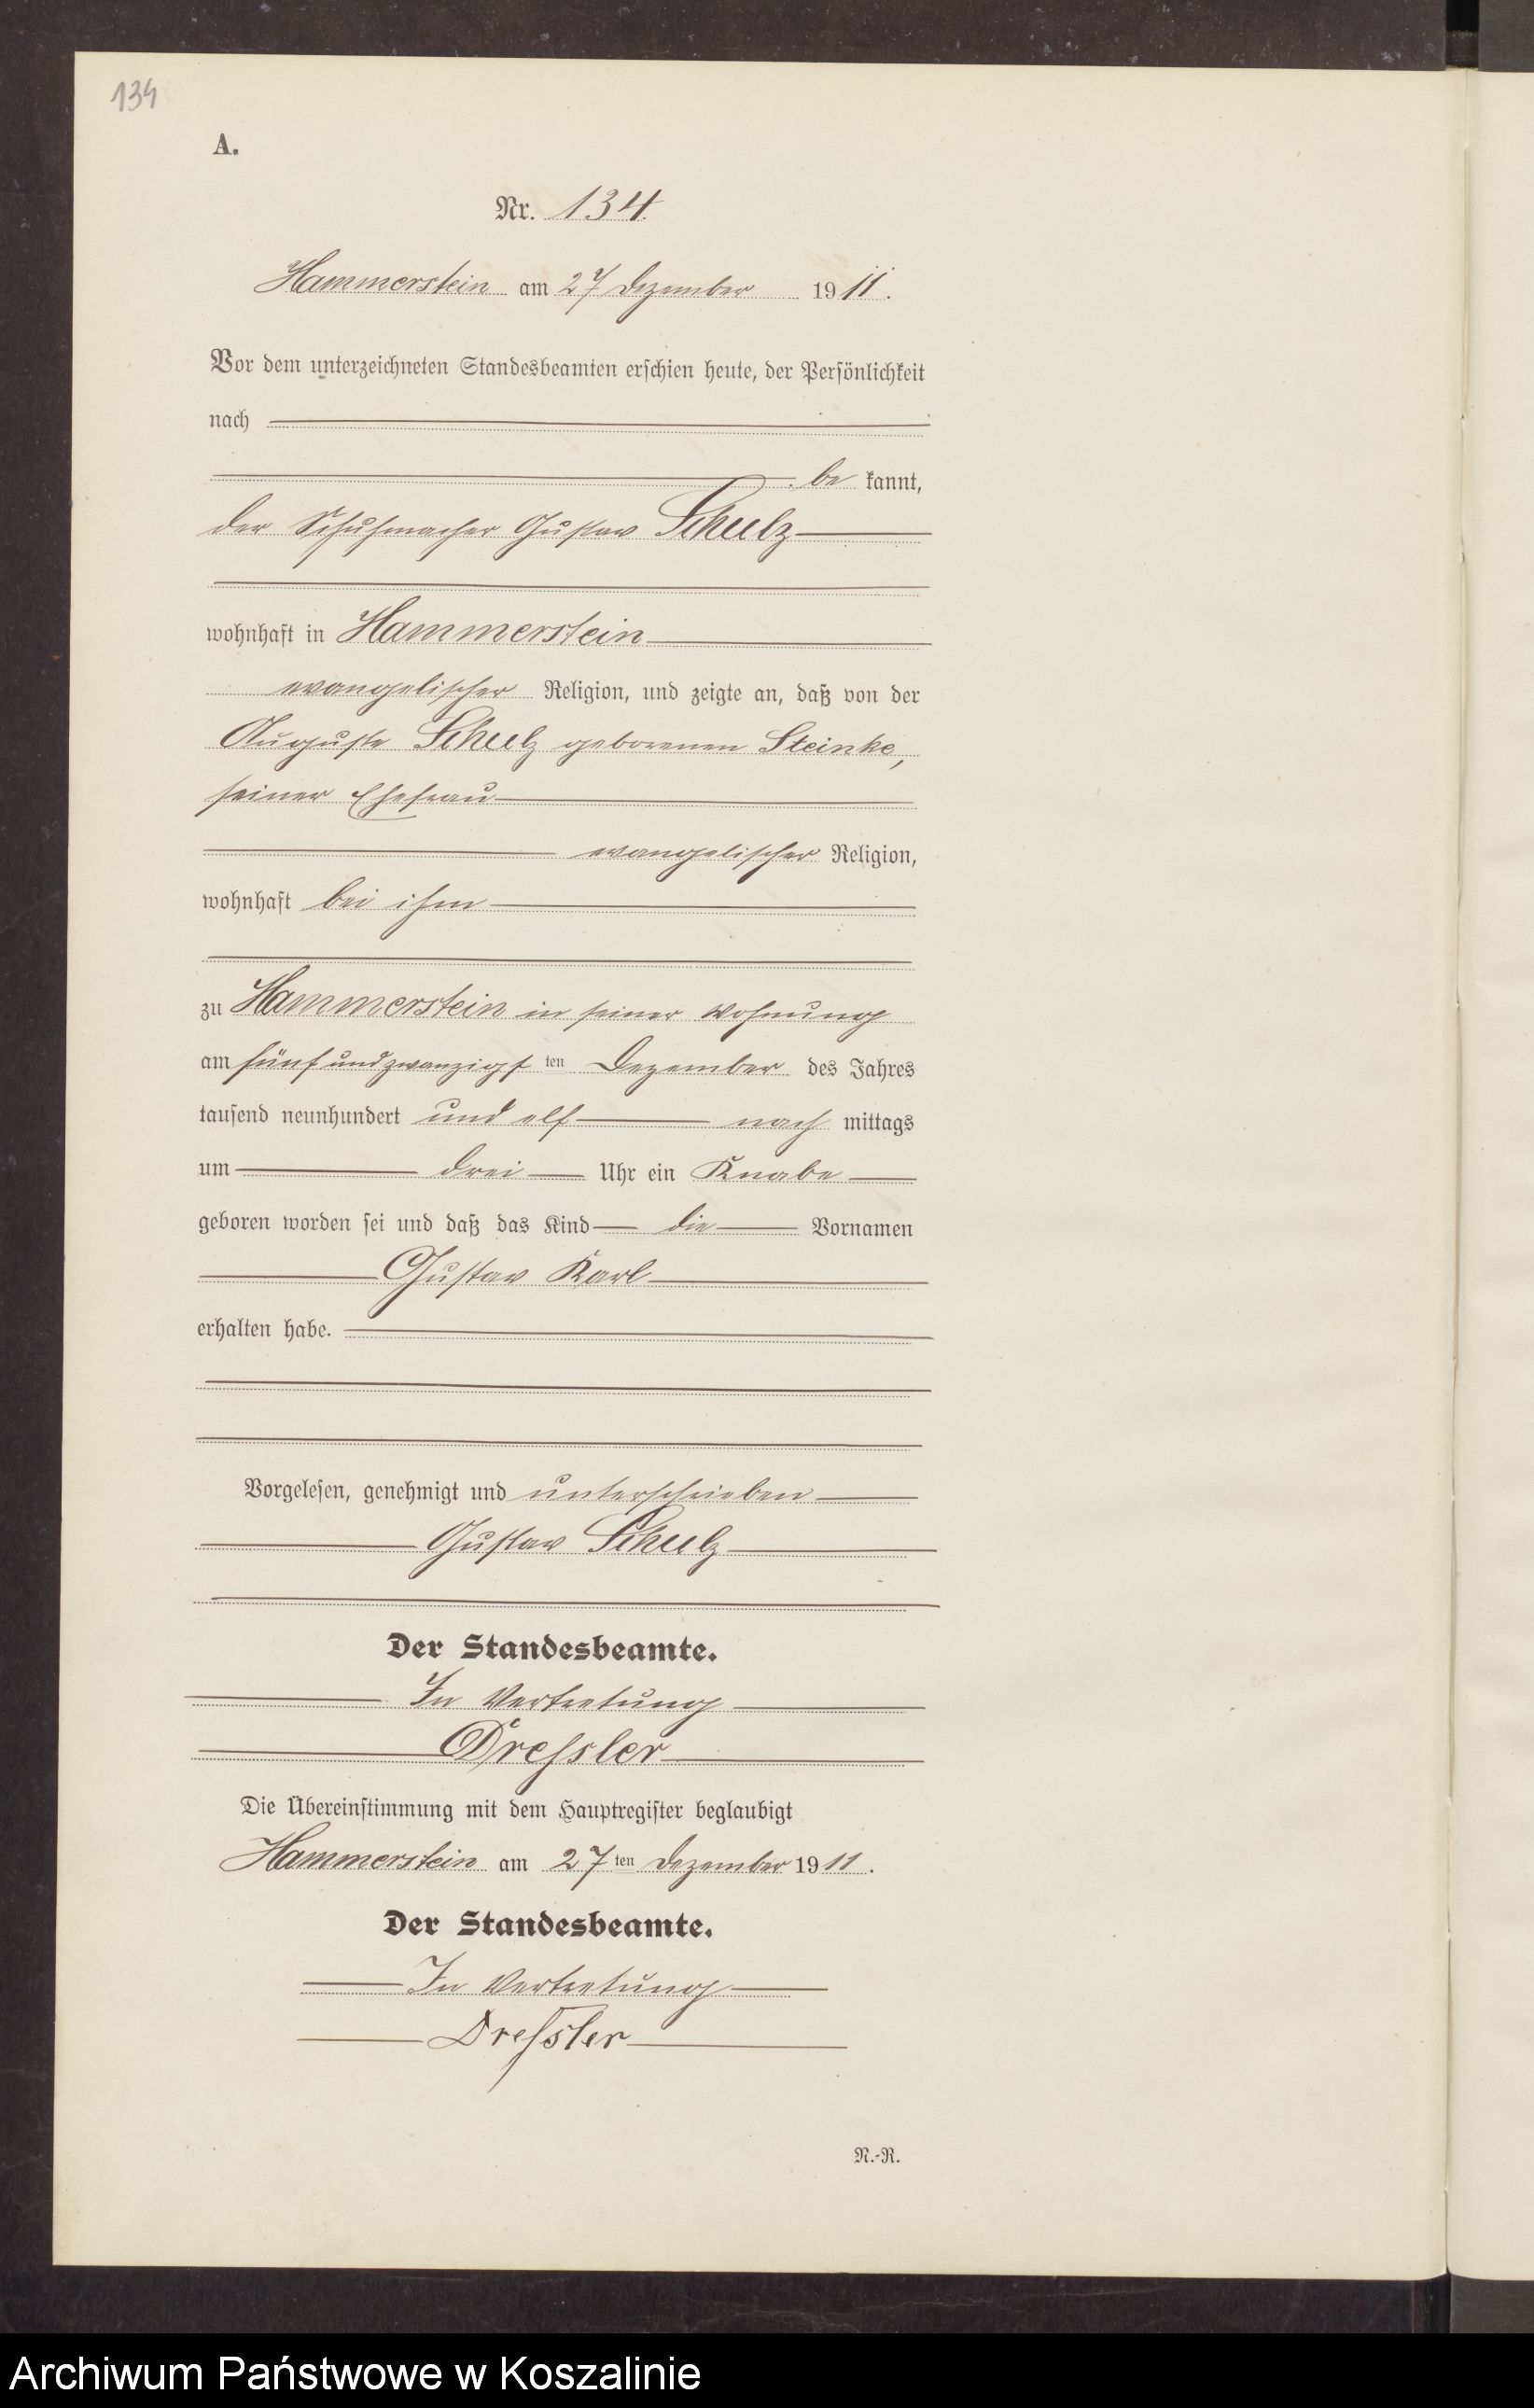 134
A.
Nr. 134.
Hammerstein am 27 Dezember 1911.
Vor dem unterzeichneten Standesbeamten erschien heute, der Persönlichkeit
nach
be kannt,
der Schuhmacher Gustav Schulz
wohnhaft in Hammerstein
evangelischer Religion, und zeigte an, daß von der
Auguste Schulz geborenen Steinke,
seiner Ehefrau
evangelischer Religion,
wohnhaft bei ihm
zu Hammerstein in seiner Wohnung
am fünfundzwanzigsten Dezember des Jahres
tausend neunhundert und elf nach mittags
um drei Uhr ein Knabe
geboren worden sei und daß das Kind die Vornamen
Gustav Karl
erhalten habe.
Vorgelesen, genehmigt und unterschrieben
Gustav Schulz
Der Standesbeamte.
In Vertretung
Dressler
Die Übereinstimmung mit dem Hauptregister beglaubigt
Hammerstein am 27 ten Dezember 1911.
Der Standesbeamte.
In Vertretung
Dressler
N.-R.
Archiwum Państwowe w Koszalinie